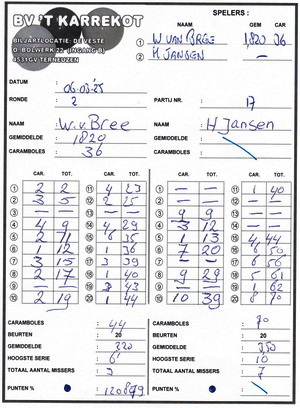 BV 'T KARREKOT
BILJARTLOCATIE: DE VESTE
O. BOLWERK 22 (INGANG B)
4531GV TERNEUZEN
SPELERS :
NAAM GEM CAR
1 W VAN BREE 1,820 36
2 H JANSEN
DATUM :
RONDE : 2 PARTIJ NR. : 17
NAAM : W. v. Bree NAAM : H Jansen
GEMIDDELDE : 1820 GEMIDDELDE :
CARAMBOLES : 36 CARAMBOLES :
CAR. TOT. CAR. TOT. CAR. TOT. CAR. TOT.
1 2 2 11 4 23 1 — — 11 1 40
2 3 5 12 2 25 2 — — 12 — —
3 — — 13 — — 3 9 9 13 — —
4 4 9 14 4 29 4 3 12 14 — —
5 2 11 15 6 35 5 1 13 15 4 44
6 1 12 16 1 36 6 7 20 16 6 50
7 3 15 17 3 39 7 — — 17 6 56
8 2 17 18 1 40 8 9 29 18 5 61
9 — — 19 3 43 9 — — 19 1 62
10 2 19 20 1 44 10 10 39 20 8 70
CARAMBOLES : 44 CARAMBOLES : 70
BEURTEN : 20 BEURTEN : 20
GEMIDDELD : 220 GEMIDDELD : 350
HOOGSTE SERIE : 6 HOOGSTE SERIE : 10
TOTAAL AANTAL MISSERS : 3 TOTAAL AANTAL MISSERS : 7
PUNTEN % : PUNTEN % :